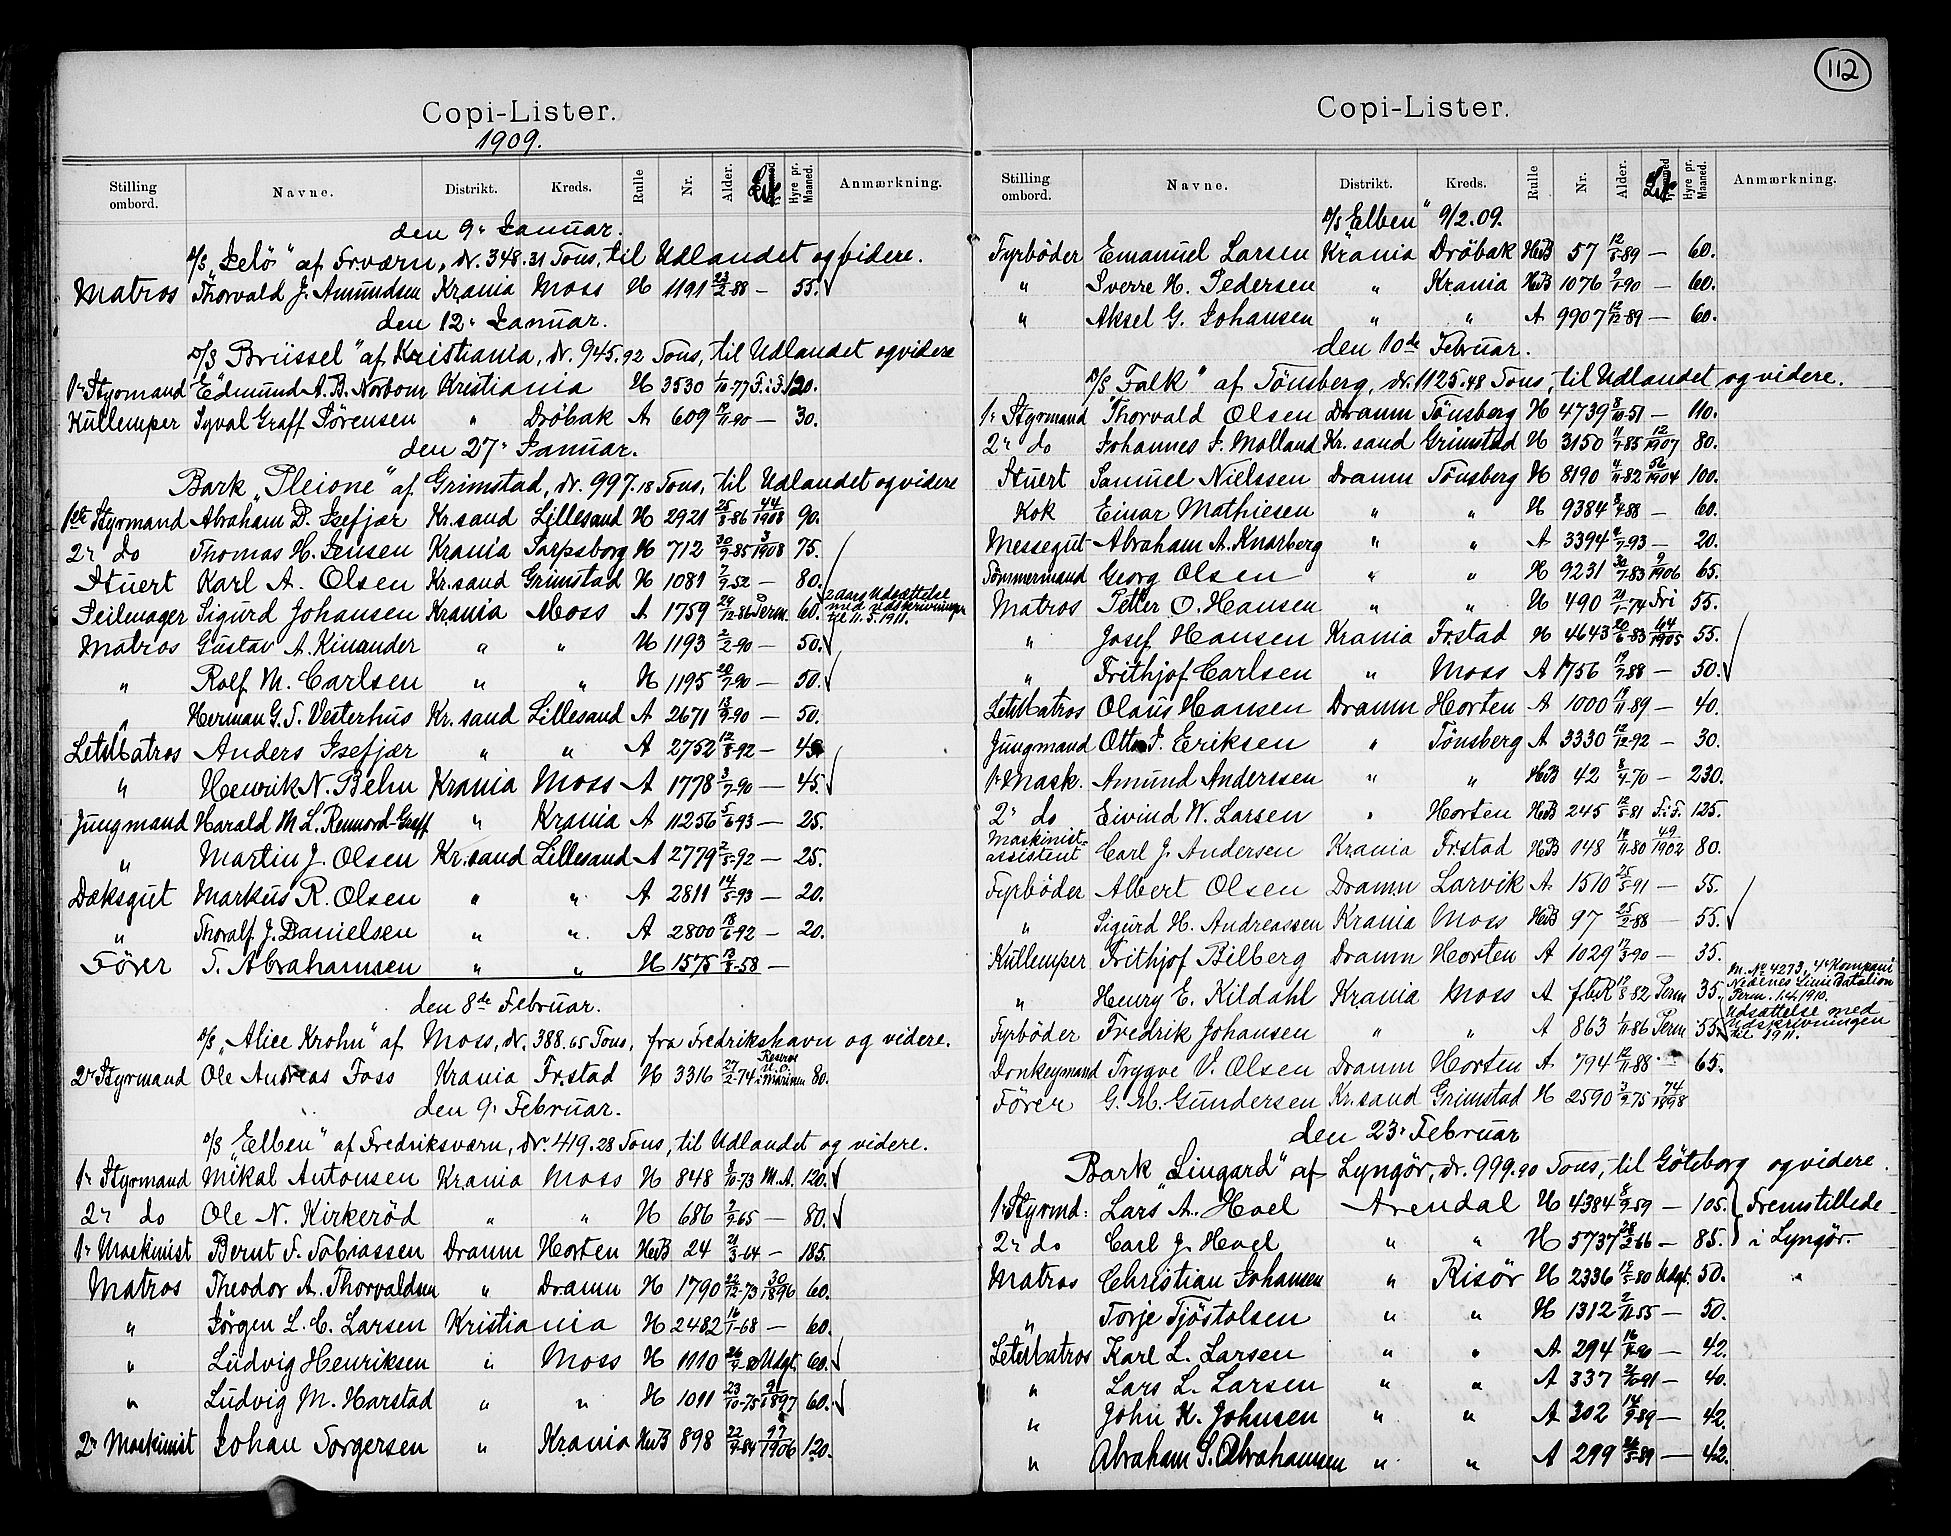 Copi-Lister.
1909.
Stilling ombord. Navne. Distrikt. Kreds. Rulle Nr. Alder. Hyre pr. Maaned. Anmærkning.
den 9. Januar.
D/S „Jelø" af Fr.værn, dr. 348.31 Tons, til Udlandet og videre.
Matros Thorvald J. Amundsen Krania Moss H 1191 23/2-88 — 55.
den 12. Januar.
D/S Brüssel" af Kristiania, dr. 945.92 Tons, til Udlandet og videre
1r Styrmand Edmund A. B. Norbom Kristiania H 3530 1/10-77 F. i. S. 120.
Kullemper Syval Graff Sørensen " Drøbak A 609 /11-90 — 30.
den 27. Januar.
Bark „Pleione" af Grimstad, dr. 997.18 Tons, til Udlandet og videre
1ste Styrmand Abraham D. Isefjær Kr.sand Lillesand H 2921 25/8-86 44/1908 90.
2r do Thomas H. Jensen Krania Sarpsborg H 712 30/9-85 3/1908 75.
Stuert Karl A. Olsen Kr.sand Grimstad H 1081 7/9-52 — 80.
Seilmager Sigurd Johansen Krania Moss A 1759 29/12-86 Perm. 60. 2 aars Udsættelse med udskrivningen til 11.5.1911.
Matros Gustav A. Kinander " " H 1193 2/2-90 — 50.
" Rolf M. Carlsen " " H 1195 20/7-90 — 50.
" Herman G. T. Vesterhus Kr.sand Lillesand A 2671 13/9-90 — 50.
Letmatros Anders Isefjær " " A 2752 12/8-92 — 45
" Henrik N. Behn Krania Moss A 1778 3/7-90 — 45.
Jungmand Harald M. L. Rennord-Graff " Krania A 11256 5/6-93 — 25.
" Martin J. Olsen Kr.sand Lillesand A 2779 2/5-92 — 25.
Dæksgut Markus R. Olsen " " A 2811 14/5-93 — 20.
" Thoralf J. Danielsen " " A 2800 18/6-92 — 20.
Fører T. Abrahamsen " " H 1575 13/8-58 —
den 8de Februar.
D/S „Alice Krohn" af Moss, dr. 388.65 Tons, fra Fredrikshavn og videre.
2r Styrmand Ole Andreas Foss Krania Fr.stad H 3316 27/2-74 Reserve U.O. i Marinen 80.
den 9. Februar.
D/S „Elben" af Fredriksværn, dr. 419.28 Tons, til Udlandet og videre.
1r Styrmand Mikal Antonsen Krania Moss H 848 8/10-73 M.A. 120.
2r do Ole N. Kirkerød " " H 686 2/9-65 — 80.
1r Maskinist Bernt F. Tobiassen Dramn Horten HuB 24 21/3-64 — 185.
Matros Theodor A. Thorvaldsen " Dramn H 1790 22/12-73 30/1896 60.
" Jørgen L. C. Larsen Kristiania H 2482 16/1-68 — 60.
" Ludvig Henriksen " Moss H 1110 26/9-80 Udgt. 60.
" Ludvig M. Harstad " " H 1011 23/10-75 9/1897 60.
2r Maskinist Johan Torgersen " Krania HuB 898 22/9-84 97/1906 120.
112
Copi-Lister.
Stilling ombord. Navne. Distrikt. Kreds. Rulle Nr. Alder. Hyre pr. Maaned. Anmærkning.
D/S „Elben" 9/2.09.
Fyrbøder Emanuel Larsen Krania Drøbak HuB 57 12/5-89 — 60.
" Sverre H. Pedersen " Krania HuB 1076 9/7-90 — 60.
" Aksel G. Johansen " " A 9907 12/12-89 — 60.
den 10de Februar.
D/S „Falk" af Tønsberg, dr. 1125.48 Tons, til Udlandet og videre.
1r Styrmand Thorvald Olsen Dramn Tønsberg H 4739 8/10-51 — 110.
2r do Johannes S. Molland Kr.sand Grimstad H 3150 11/7-85 12/1907 80.
Stuert Samuel Nielssen Dramn Tønsberg H 8190 4/11-82 52/1904 100.
Kok Einar Mathiesen " " H 9384 /4-88 — 60.
Messegut Abraham A. Knarberg " " A 3394 /7-93 — 20.
Tømmermand Georg Olsen " " H 9231 30/7-83 9/1906 65.
Matros Petter O. Hansen " " H 490 21/1-74 Fri 55.
" Josef Hansen Krania Fr.stad H 4643 20/6-83 64/1905 55.
" Frithjof Carlsen " Moss A 1756 19/7-88 — 50.
Letmatros Olaus Hansen Dramn Horten A 1000 19/11-89 — 40.
Jungmand Otto J. Eriksen " Tønsberg A 3330 12/12-92 — 30.
1r Mask. Amund Anderssen " " HuB 42 8/4-70 — 230.
2r do Eivind W. Larsen " Horten HuB 245 12/5-81 F. i. F. 125.
Maskinist-assistent Carl J. Andersen Krania Fr.stad HuB 148 18/11-80 49/1902 80.
Fyrbøder Albert Olsen Dramn Larvik A 1510 25/5-91 — 55.
" Sigurd H. Andreassen Krania Moss HuB 97 25/2-88 — 55.
Kullemper Frithjof Bilberg Dramn Horten A 1029 17/3-90 — 35.
" Henry E. Kildahl Krania Moss A f.b.R 17/8-82 Perm 35. M. No 4273, 4de Kompani Nedenes Linie Batalion Perm. 1.4.1910.
Fyrbøder Fredrik Johansen " " A 863 1/11-86 Perm 55. Udsættelse med Udskrivningen til 1911.
Donkeymand Trygve V. Olsen Dramn Horten A 794 12/11-88 — 65.
Fører G. M. Gundersen Kr.sand Grimstad H 2590 3/9-75 74/1898
den 23. Februar
Bark „Lingard" af Lyngør, dr. 999.90 Tons, til Gøteborg og videre.
1r Styrmd. Lars A. Hoel Arendal H 4384 8/9-59 — 105. Fremstillede
2r do Carl J. Hoel " " H 5737 28/2-66 — 85. i Lyngør.
Matros Christian Johansen " Risør H 2336 19/5-80 Udgt. 50. "
" Torje Tjøstolsen " " H 1312 2/11-55 — 50.
Letmatros Karl L. Larsen " " A 294 16/-90 — 42.
" Lars L. Larsen " " A 337 /10-91 — 40.
" John K. Johnsen " " A 302 14/9-89 — 42.
" Abraham S. Abrahamsen " " A 299 26/5-89 — 42.